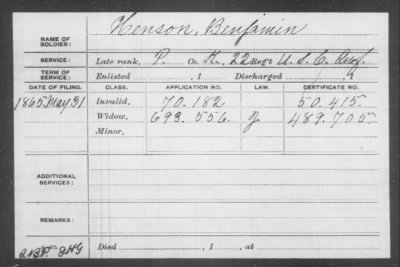 NAME OF SOLDIER: Henson, Benjamin
SERVICE: Late rank, P. Co. K, 22 Reg't U. S. C. Inf.
TERM OF SERVICE: Enlisted , 1 Discharged , 1
DATE OF FILING. CLASS. APPLICATION NO. LAW. CERTIFICATE NO.
1865 May 31 Invalid, 70.182 50.415
Widow, 693.556 J 489.705
Minor,
ADDITIONAL SERVICES:
REMARKS:
Died , 1 , at